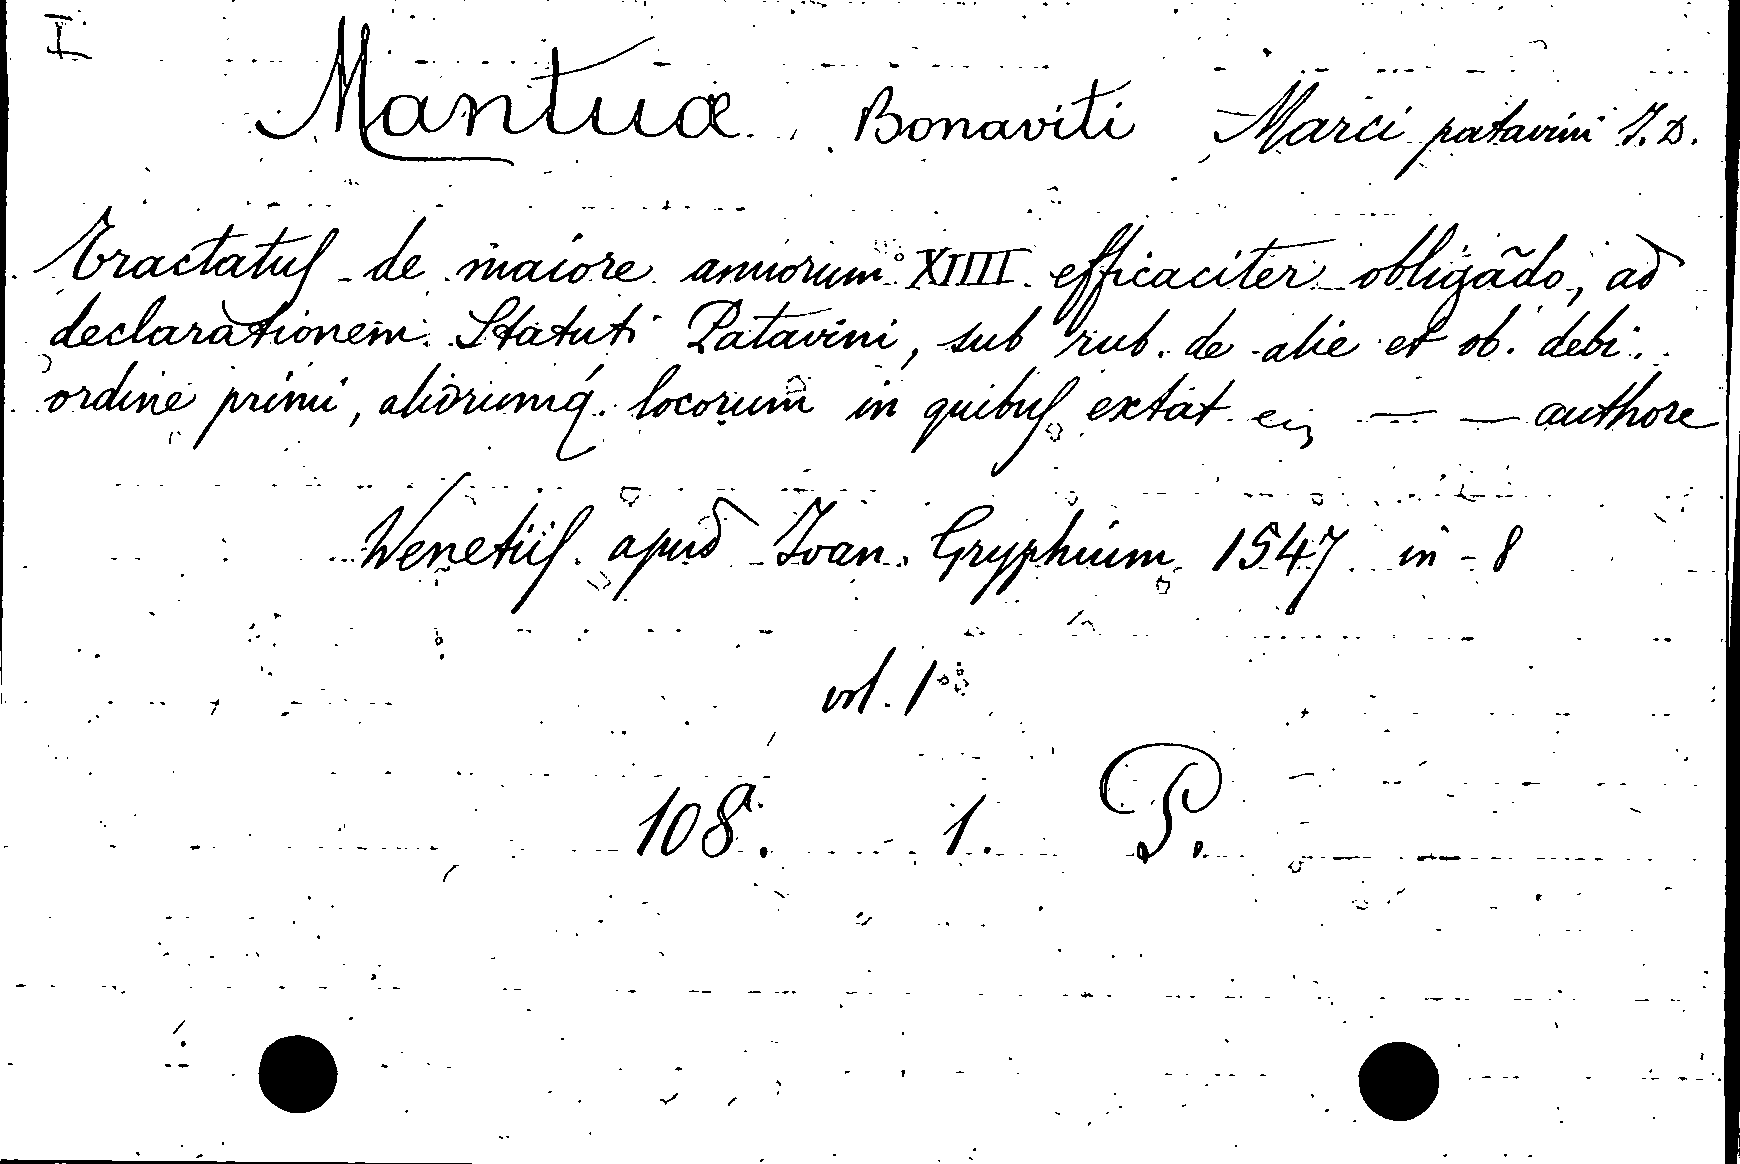 I
Mantuæ Bonaviti Marci patavini J. D.
Tractatus de maiore annorum XIIII efficaciter obligãdo, ad
declarationem Statuti Patavini, sub rub. de alie et ob. debi.
ordine primi, aliorumq. locorum in quibus extat — — authore
Venetiis apud Ioan. Gryphium 1547 in - 8
vol. 1
108. 1. P.